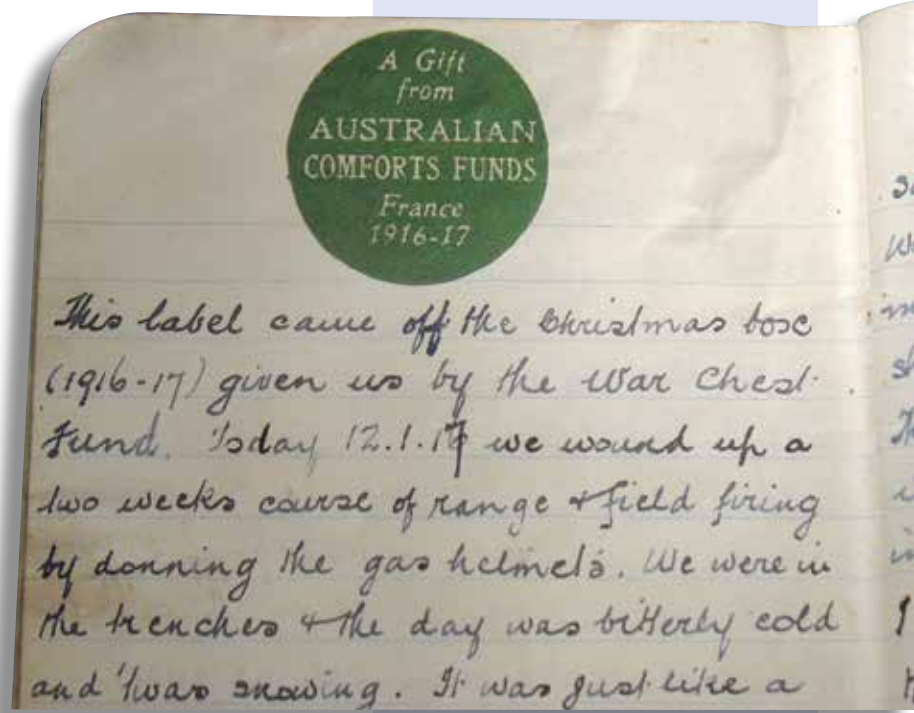 A Gift
from
AUSTRALIAN
COMFORTS FUNDS
France
1916-17
This label came off the Christmas box
(1916-17) given us by the War Chest
Fund. Today 12.1.17 we wound up a
two weeks course of range & field firing
by donning the gas helmets. We were in
the trenches & the day was bitterly cold
and 'twas snowing. It was just like a